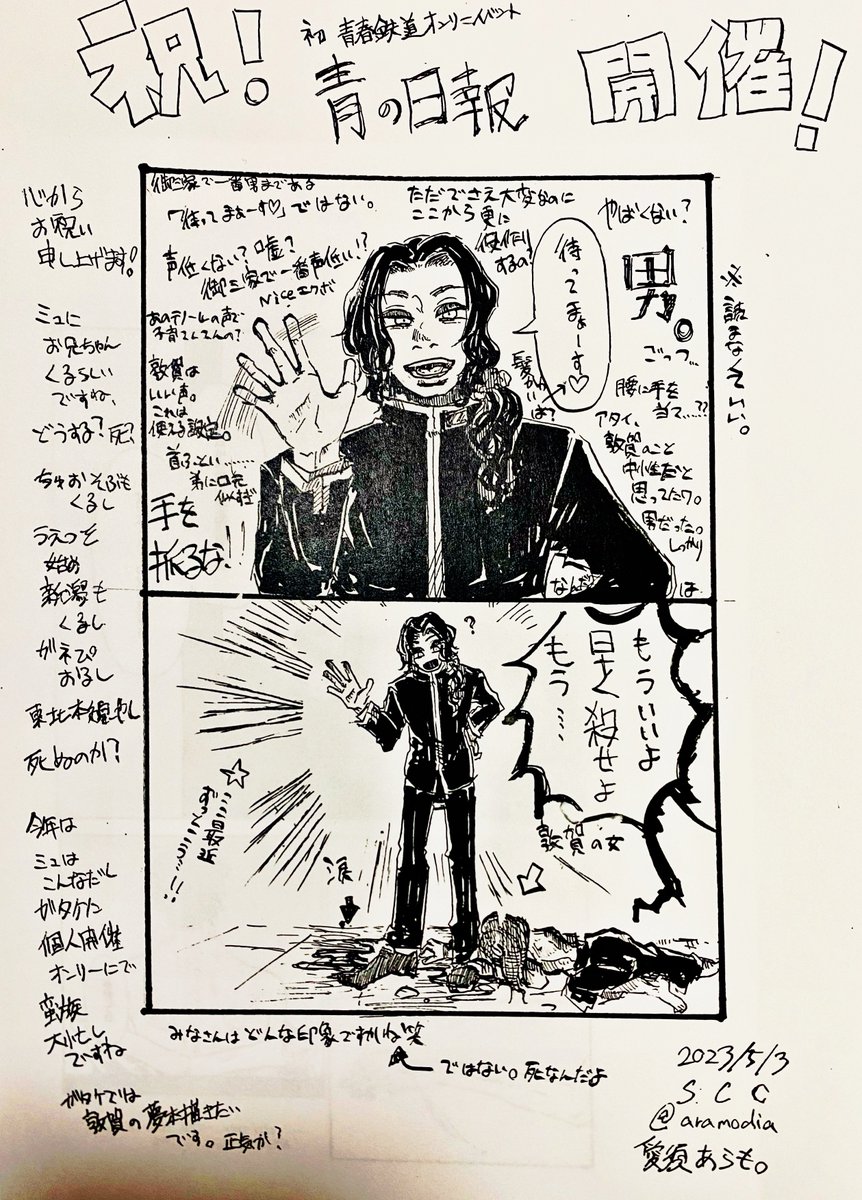 祝!
初 青春鉄道オンリーイベント
青の日報
開催!
心から
お祝い
申し上げます!
ミュに
お兄ちゃん
くるらしい
ですね、
どうする?死?
ちちおそぶも
くるし
うえつを
始め
新潟も
くるし
がネぴ
おるし
東北本線もおるし
死ぬのか?
今年は
ミュは
こんなだし
ガタケに
個人開催
オンリーにで
蛮族
大忙し
ですね
ガタケでは
敦賀の夢本描きたい
です。正気か?
御三家で一番男まである
「待ってまぁーす♡」ではない。
声低くない?嘘?
御三家で一番声低い!?
Niceエクボ
あのテノールの声で
子育てしてんの?
敦賀は
いい声。
これは
使える設定。
首ふっとい……
弟に口元
似すぎ
手を
振るな!!
ただでさえ大変なのに
ここから更に
便作り
するの?
待ってまぁーす♡
髪かわいい
は?
やばくない?
男。
ごっつ…
腰に手を
当て…??
アタイ、
敦賀のこと
中性だと
思ってたワ。
男だった。
しっかり
なんだ
は
※読まなくていい。
もういいよ
早く殺せよ
もう……
敦賀の女
?
☆ここ最近
ずっとこう…!!
涙
みなさんはどんな印象ですかね笑
ではない。死なんだよ
2023/5/3
SCC
@aramodia
髪須あらも。